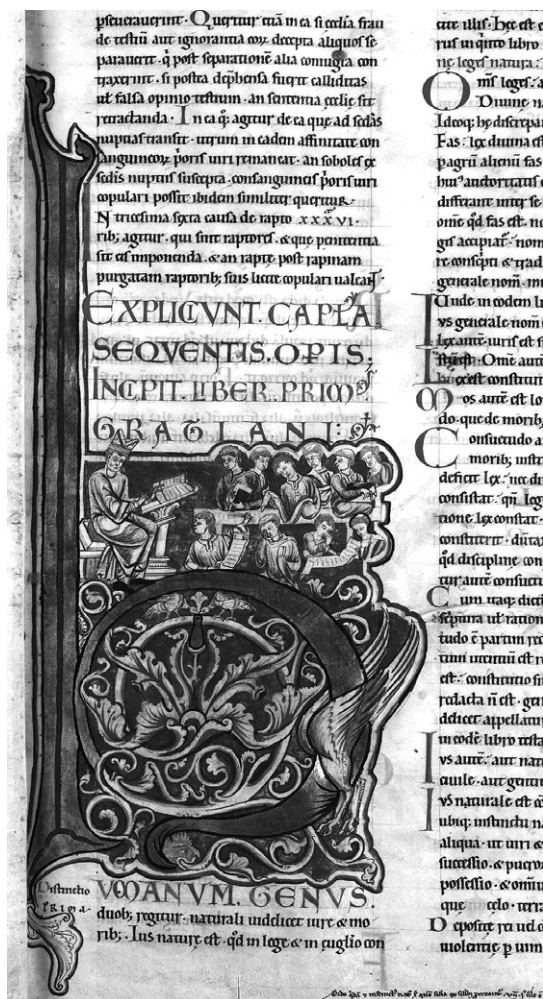 pseuerauerint· Queritur etiā in ea si ecclīa frau
de testiū aut ignorantia eoꝝ decepta aliquos se
parauerit· q̇ post separationē alia coniugia con
traxerint· si postea dephensa fuerit calliditas
ul̄ falsa opinio testium· an sententia ecclīe sit
retractanda· In ea q̇ agitur de ea que ad sc̄das
nuptias transit· utrum in eadem affinitate con
sanguineoꝝ p̄oris uiri remaneat· an soboles ex
sc̄dis nuptiis suscepta· consanguineis p̄oris uiri
copulari possit ibidem similiter queritur·
N tricesima sexta causa de rapto xxxvi·
ribꝫ agitur· qui sint raptores· & que penitentia
sit eis imponenda· & an rapte post rapinam
purgatam raptoribꝫ suis licite copulari ualeat·
EXPLICIVNT· CAPLA
SEQVENTIS· OPIS:
INCPIT· LIBER· PRIM⁹
GRATIANI:
Distinctio
PRIMA·
VMANVM· GENVS·
duobꝫ regitur· naturali uidelicet iure & mo
ribꝫ· Ius nature est· qd̄ in lege & in euglio con
tur illis· Hec est
rus in quito libro
ne leges natura:
Om̄s leges· a
Diuine na
Ideoqꝫ he discrepan
Fas· lex diuina est
p agrū alienū fas
huꝰ auctoritatis
differant inter se
om̄e qd̄ fas est· no
gis accipiat̄· nom
re conscp̄ti & trad
generale nom̄· mu
Unde in eodem li
Ivs generale nom̄
Lex autē iuris est s
Om̄e autē
Lex est constituti
Mos autē est lo
do· que de moribꝫ
Consuetudo a
moribꝫ instit
deficit lex· nec di
consistat· qn̄ leg
tione lex constat·
constiterit· dūtax
qd̄ discipline con
tur autē consuetu
Cum itaqꝫ dicit̄
scp̄tura ul̄ ration
tudo ē partim red
tum utentiū est re
est· constitutio siu
redacta n̄ est· gen
dicet appellatur
in eodē libro testa
Ivs autē aut natu
ciuile· aut gentiu
Ivs naturale est co
ubiqꝫ instinctu na
aliqua· ut uiri &
successio· & pueror
possessio· & omniu
que celo· terra
Deposite rei uel c
uiolentie p uim